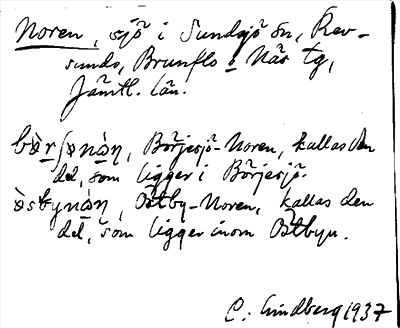 Noren, sjö i Sundsjö sn, Rev-
sunds, Brunflo o Näs tg,
Jämtl. län.
Börjesjö-Noren, kallas den
del, som ligger i Börjesjö.
Östby-Noren, kallas den
del, som ligger inom Östbyn.
C. Lindberg 1937